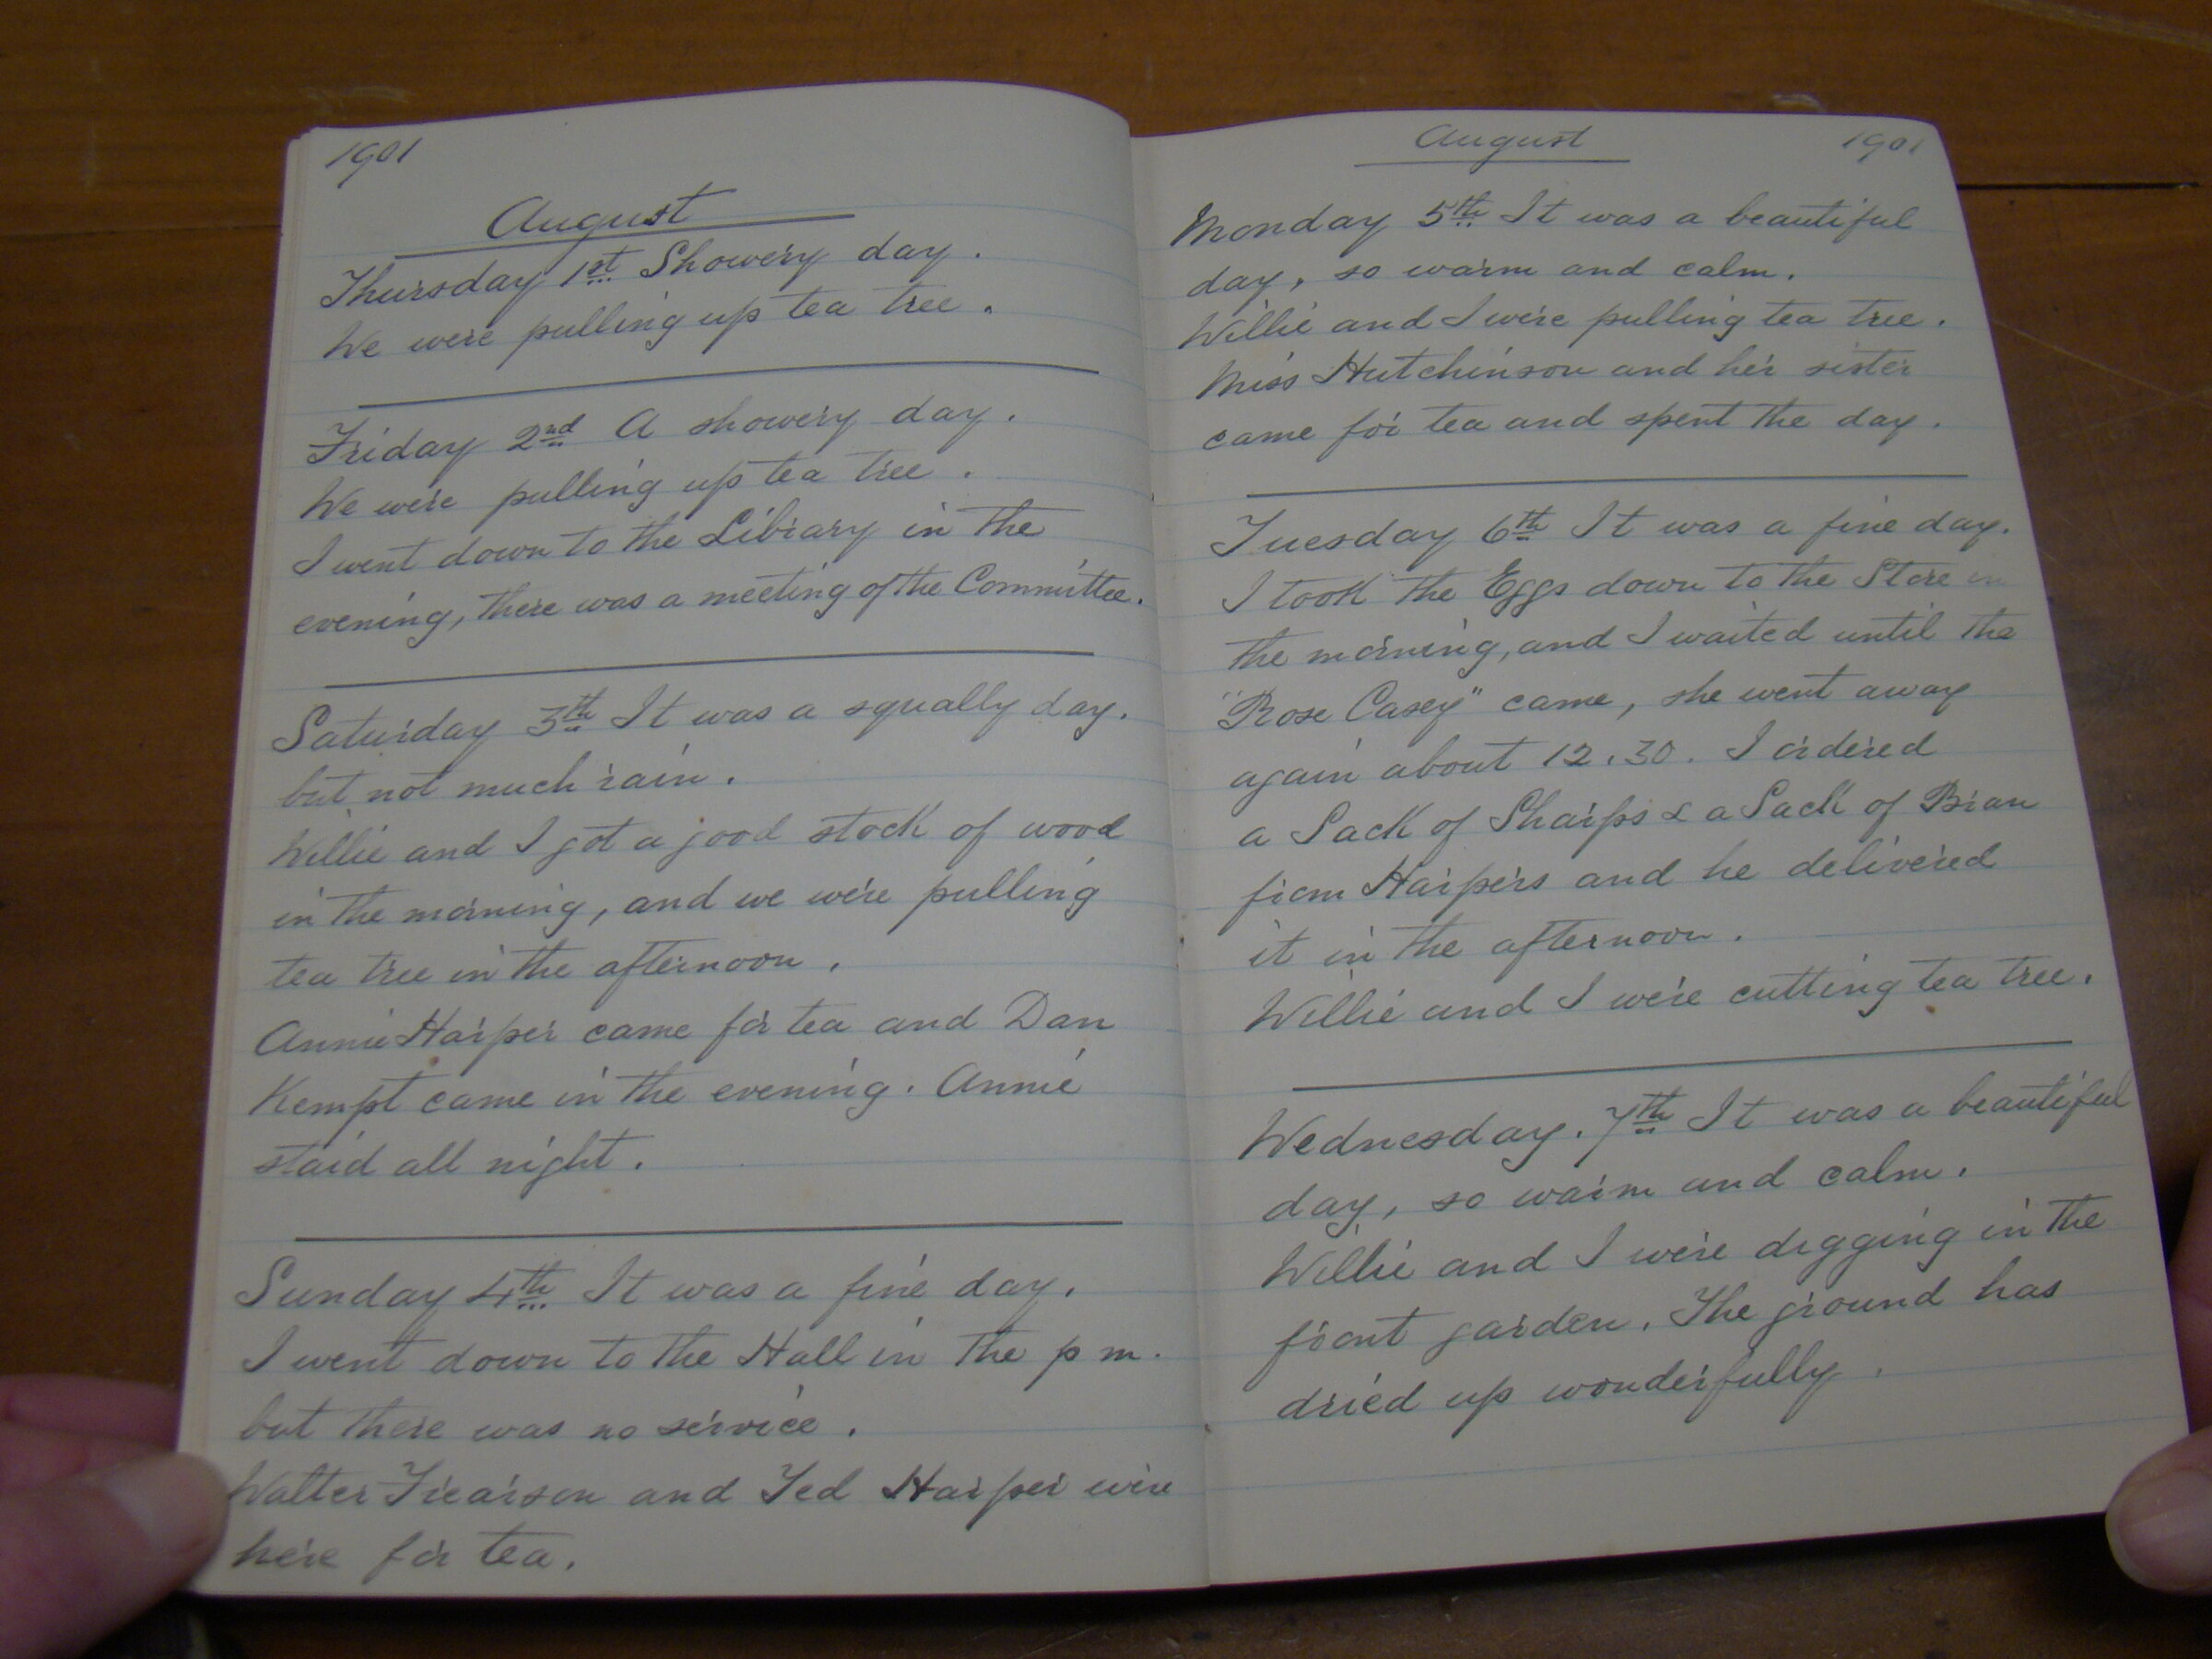 1901
August
Thursday 1st Showery day.
We were pulling up tea tree.
Friday 2nd A showery day.
We were pulling up tea tree.
I went down to the Library in the
evening, there was a meeting of the Committee.
Saturday 3th It was a squally day.
but not much rain.
Willie and I got a good stock of wood
in the morning, and we were pulling
tea tree in the afternoon.
Annie Harper came for tea and Dan
Kempt came in the evening. Annie
staid all night.
Sunday 4th It was a fine day.
I went down to the Hall in the p m.
but there was no service.
Walter Frearson and Ted Harper were
here for tea.
August 1901
Monday 5th It was a beautiful
day, so warm and calm.
Willie and I were pulling tea tree.
Miss Hutchinson and her sister
came for tea and spent the day.
Tuesday 6th It was a fine day.
I took the Eggs down to the Store in
the morning, and I waited until the
"Rose Casey" came, she went away
again about 12.30. I ordered
a Sack of Sharps & a Sack of Bran
from Harpers and he delivered
it in the afternoon.
Willie and I were cutting tea tree.
Wednesday. 7th It was a beautiful
day, so warm and calm.
Willie and I were digging in the
front garden. The ground has
dried up wonderfully.